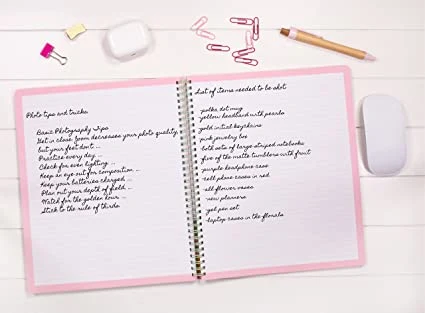 Photo tips and tricks
Basic Photography Tips
Get in close, zoom decreases your photo quality,
but your feet don't ...
Practice every day ...
Check for even lighting ...
Keep an eye out for composition ...
Keep your batteries charged ...
Plan out your depth of field ...
Watch for the golden hour ...
Stick to the rule of thirds.
List of items needed to be shot
-polka dot mug
-yellow headband with pearls
-gold initial keychains
-pink jewelry box
-both sets of large striped notebooks
-five of the matte tumblers with fruit
-purple headphone case
-cell phone cases in red
-all flower vases
-new planners
-gel pen set
-laptop cases in the florals